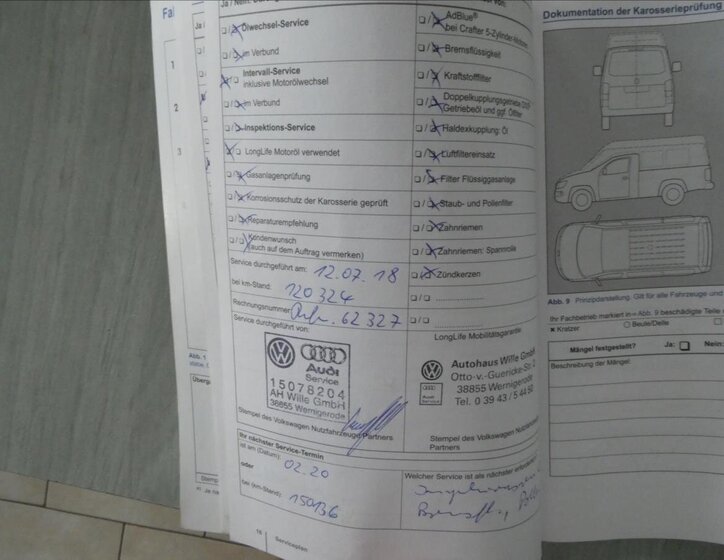 Ja / Nein:
Ölwechsel-Service
im Verbund
Intervall-Service
inklusive Motorölwechsel
im Verbund
Inspektions-Service
LongLife Motoröl verwendet
Gasanlagenprüfung
Korrosionsschutz der Karosserie geprüft
Reparaturempfehlung
Kundenwunsch
(auch auf dem Auftrag vermerken)
Service durchgeführt am: 12.07.18
bei km-Stand: 120324
Rechnungsnummer: 62327
Service durchgeführt von:
Audi
Service
15078204
AH Wille GmbH
38855 Wernigerode
Stempel des Volkswagen Nutzfahrzeuge Partners
Ihr nächster Service-Termin
ist am (Datum): 02.20
oder
bei (km-Stand): 150136
16 Serviceplan
AdBlue®
bei Crafter 5-Zylinder-Motoren
Bremsflüssigkeit
Kraftstofffilter
Doppelkupplungsgetriebe
Getriebeöl und ggf. Ölfilter
Haldexkupplung: Öl
Luftfiltereinsatz
Filter Flüssiggasanlage
Staub- und Pollenfilter
Zahnriemen
Zahnriemen: Spannrolle
Zündkerzen
LongLife Mobilitätsgarantie
Autohaus Wille GmbH
Otto-v.-Guericke-Str.
38855 Wernigerode
Tel. 0 39 43 / 5 44 50
Audi
Service
Stempel des Volkswagen Nutzfahrzeuge
Partners
Welcher Service ist als nächster
Dokumentation der Karosserieprüfung
Abb. 9 Prinzipdarstellung. Gilt für alle Fahrzeuge und
Ihr Fachbetrieb markiert in ⇒ Abb. 9 beschädigte Teile
× Kratzer ○ Beule/Delle
Mängel festgestellt? Ja: Nein:
Beschreibung der Mängel: